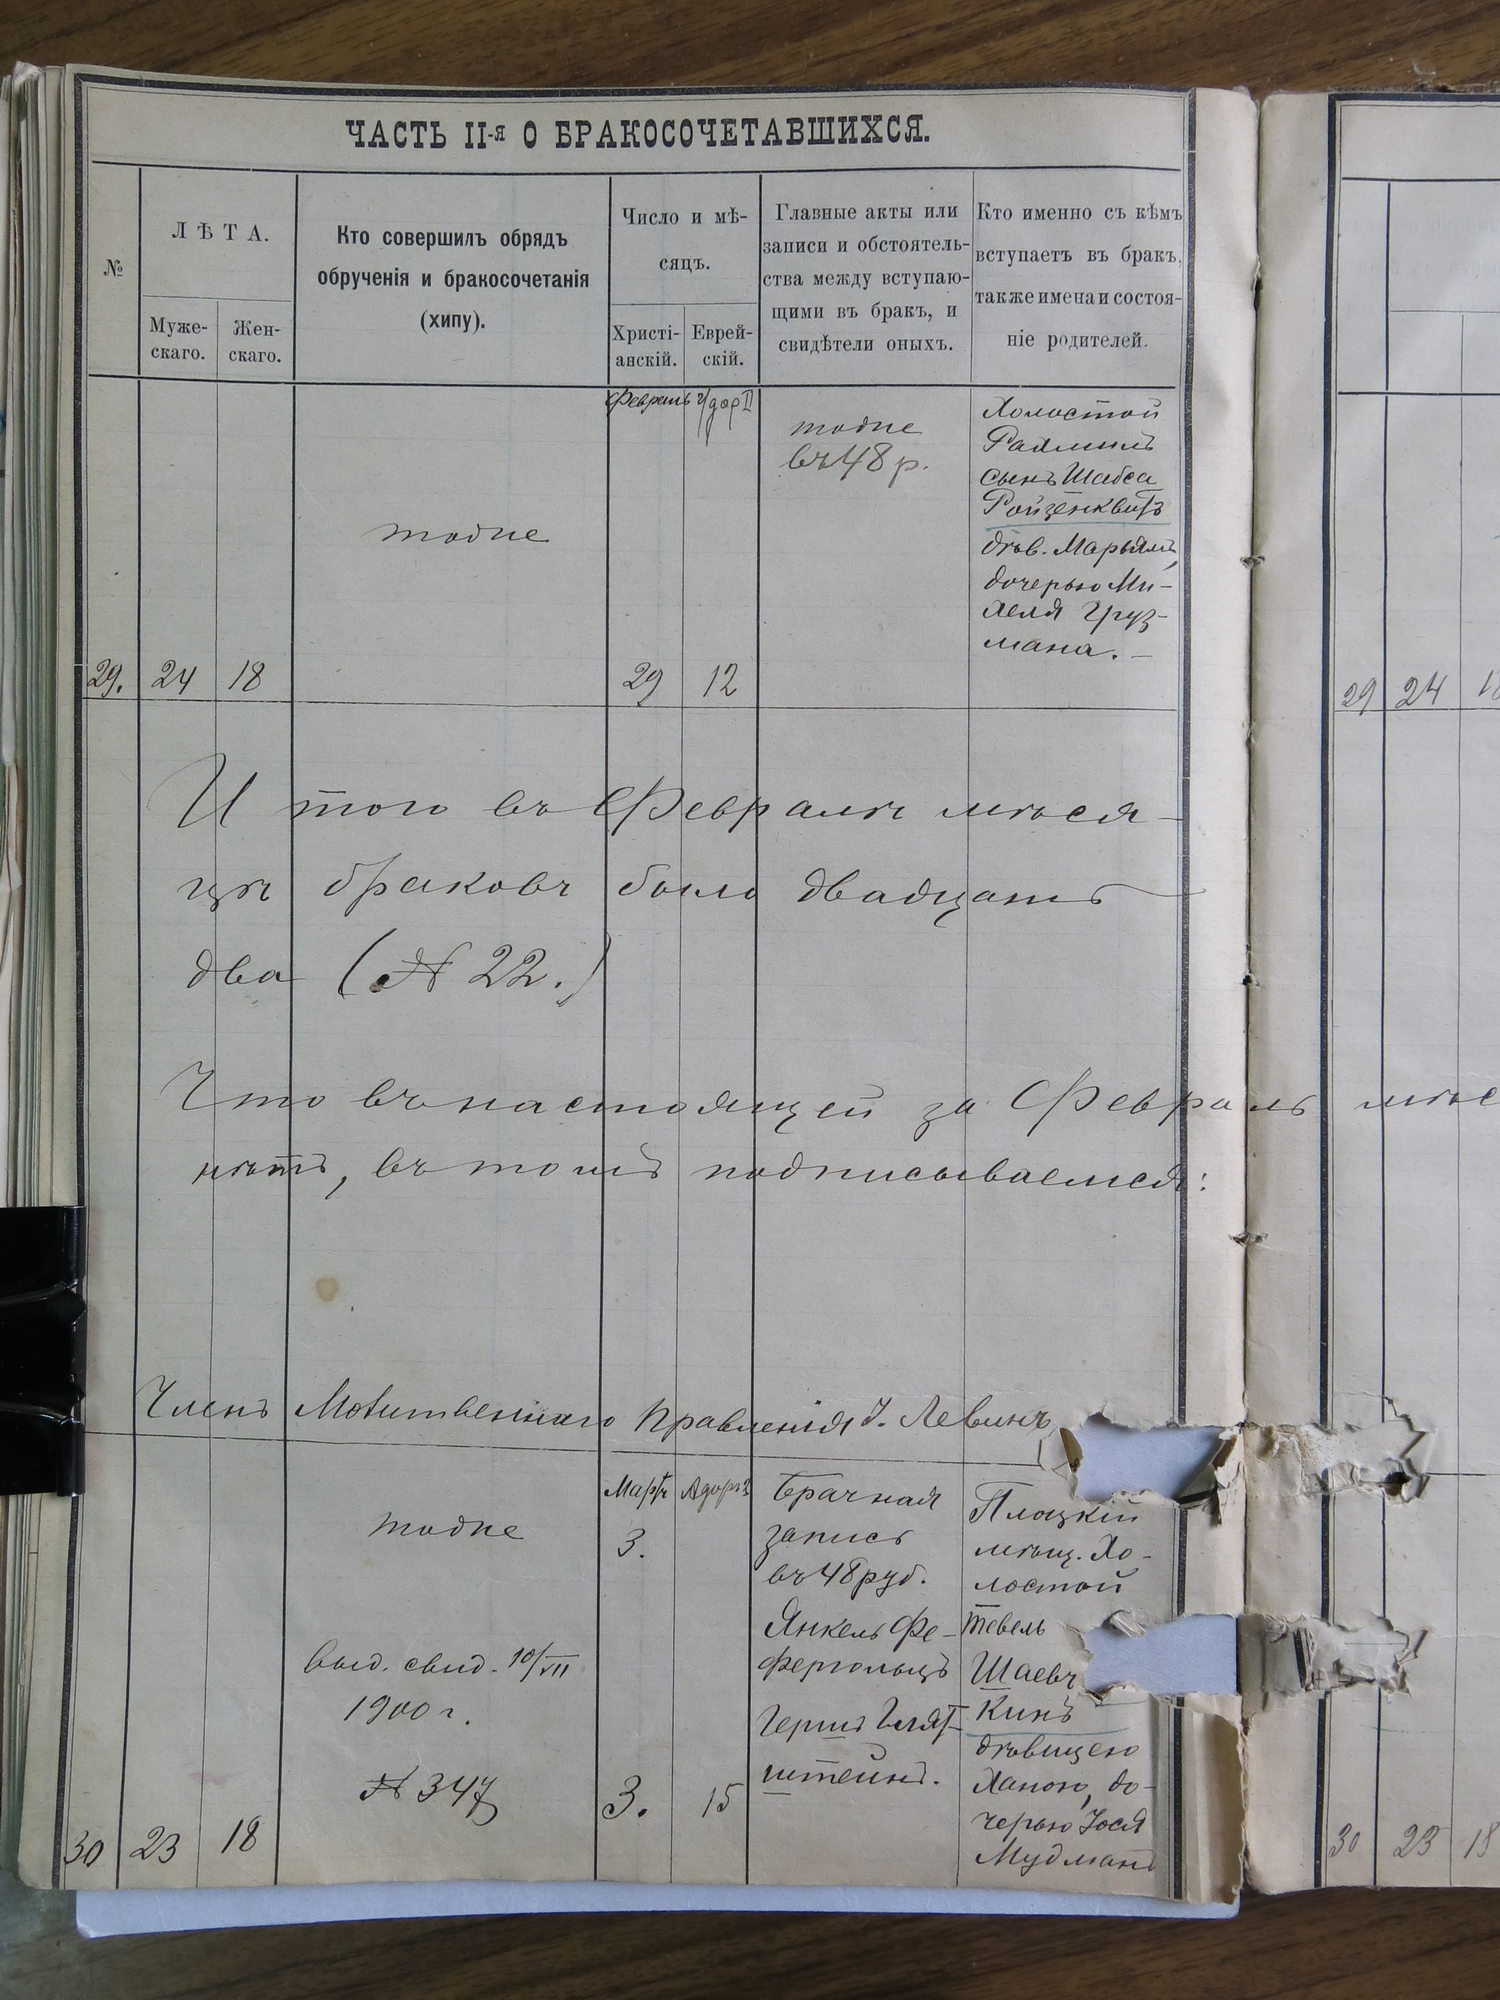 ЧАСТЬ II-я О БРАКОСОЧЕТАВШИХСЯ.
№
ЛѢТА.
Муже-
скаго.
Жен-
скаго.
Кто совершилъ обрядъ
обрученія и бракосочетанія
(хипу).
Число и мѣ-
сяцъ.
Христі-
анскій.
Еврей-
скій.
Главные акты или
записи и обстоятель-
ства между вступаю-
щими въ бракъ, и
свидѣтели оныхъ.
Кто именно съ кѣмъ
вступаетъ въ бракъ,
также имена и состоя-
ніе родителей.
29.
24
18
тодне
Февраль
29
Адор II
12
тодне
въ 48 р.
Холостой
Рахмиль
сынъ Шабса
Ройзенквитъ
дѣв. Марьямъ,
дочерью Ми-
хеля Груз-
мана.
И того въ Февралѣ мѣся-
цѣ браковъ было двадцать
два (№ 22.)
Что въ настоящей за Февраль мѣс
нѣтъ, въ томъ подписываемся:
Членъ Молитвеннаго Правленія І. Левинъ
30
23
18
тодне
выд. свид. 10/VII
1900 г.
№ 347
Мартъ
3.
3.
15
Брачная
запись
въ 48 руб.
Янкель Фе-
Гершъ
штейнъ.
Плоцкій
мѣщ. Хо-
лостой
Тевель
Шаевъ
Кинъ
дѣвицею
Ханою, до-
черью Іося
Мудманъ
29
24
30
23
18